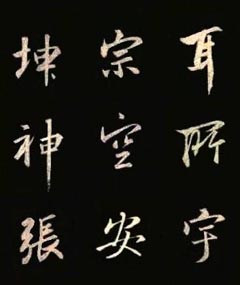 耳所宇
宗空安
坤神張